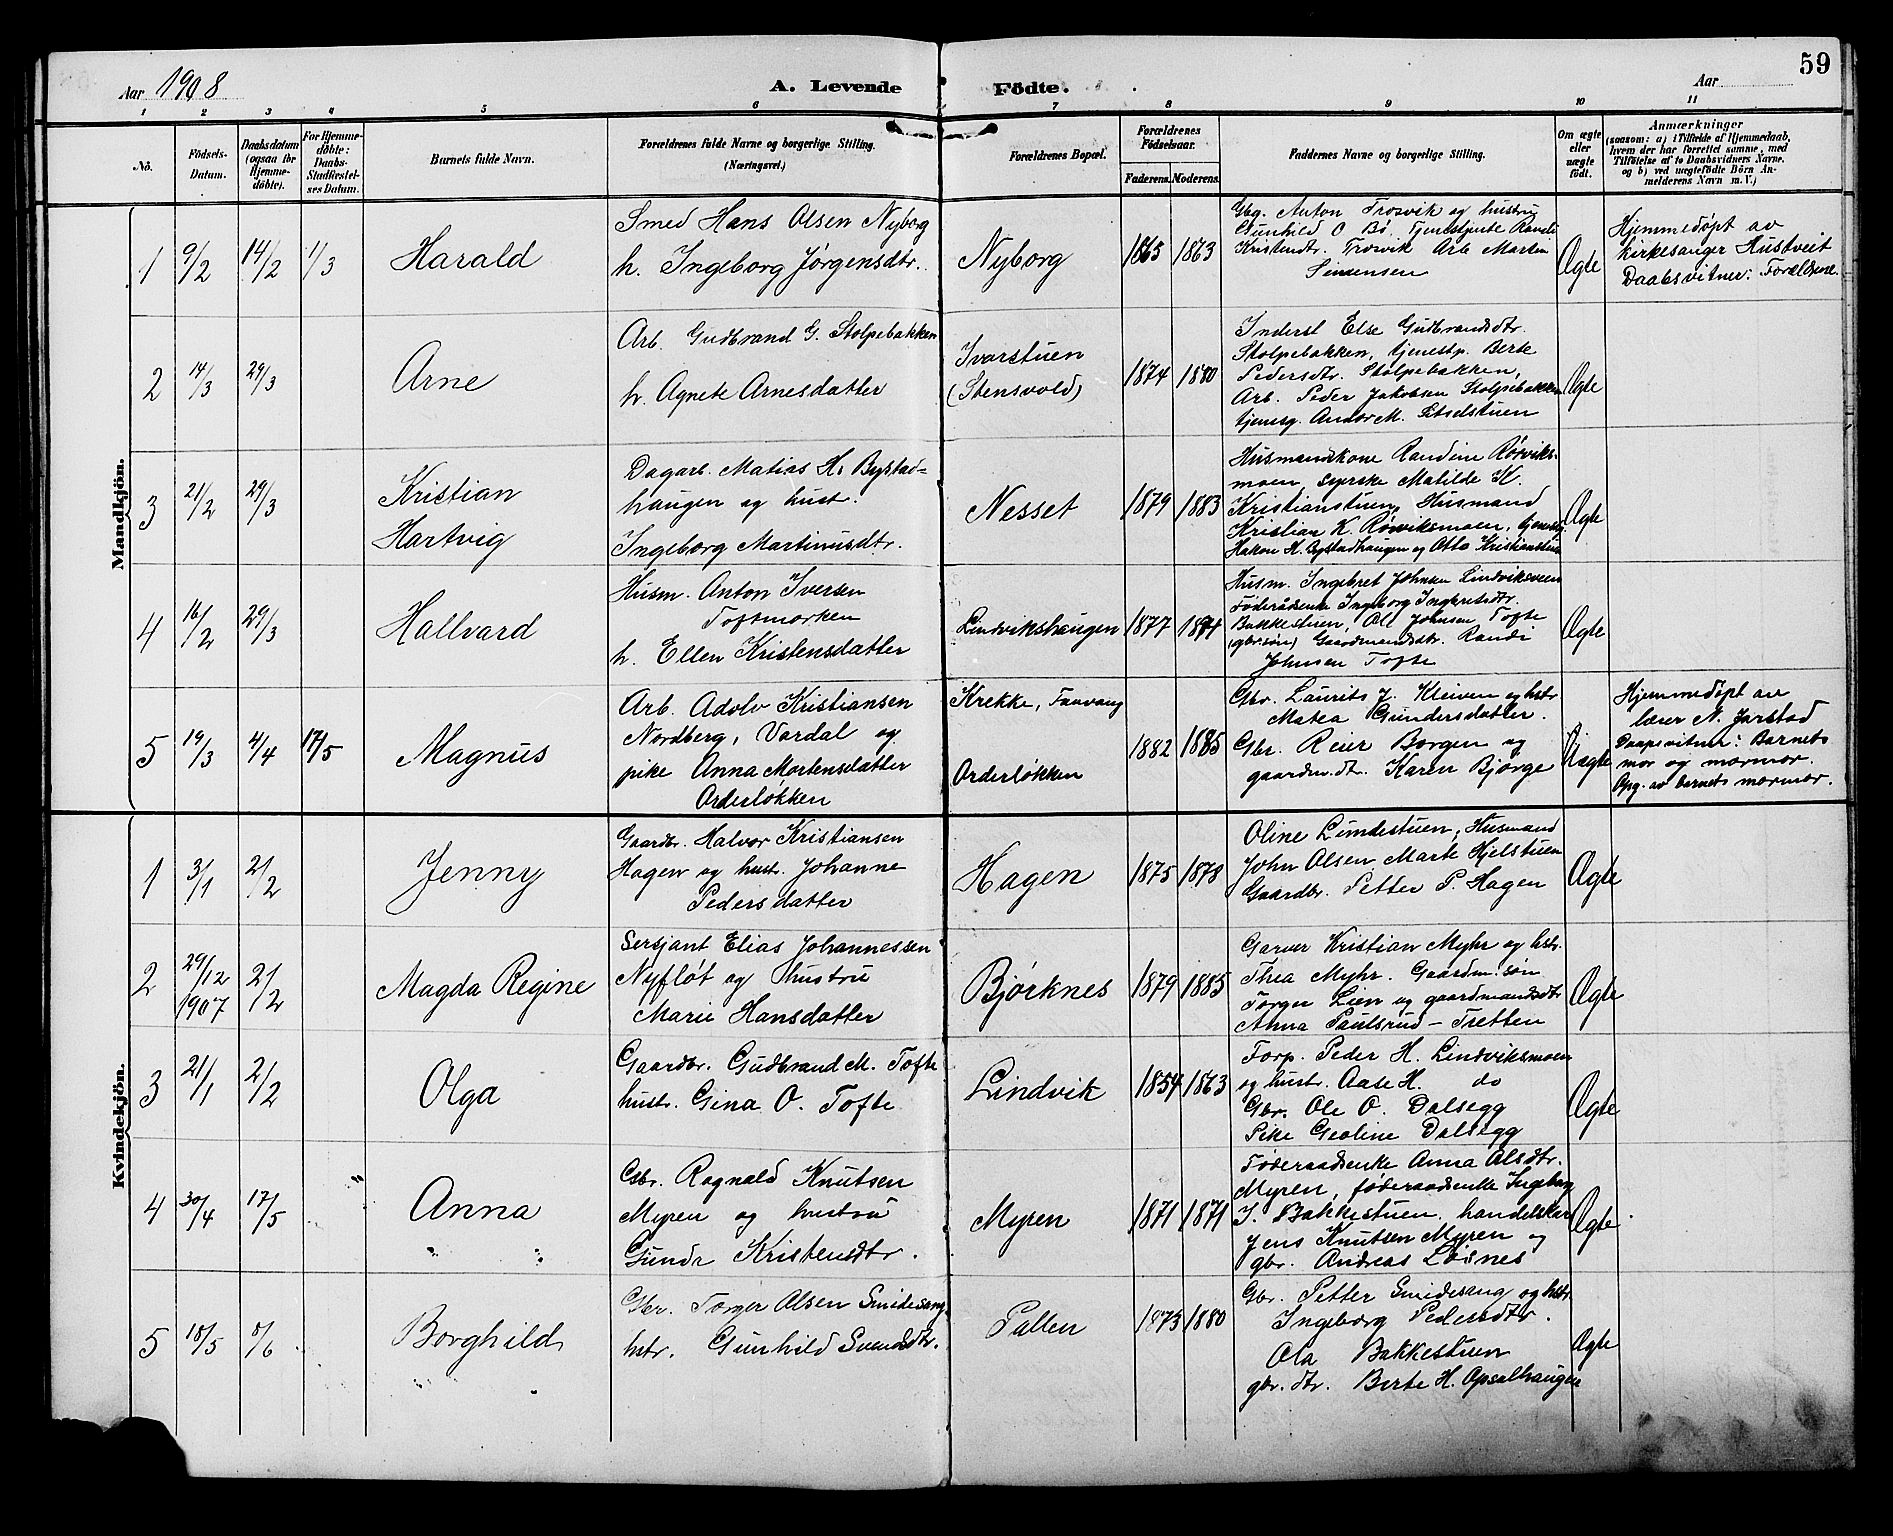 59
Aar 1908
A. Levende Födte.
Aar
1 2 3 4 5 6 7 8 9 10 11
No.
Födsels-Datum.
Daabsdatum (ogsaa for Hjemme-döbte).
For Hjemme-döbte: Daabs-Stadfæstel-ses Datum.
Barnets fulde Navn.
Forældrenes fulde Navne og borgerlige Stilling.
(Næringsvei.)
Forældrenes Bopæl.
Forældrenes Födselsaar.
Faderens. Moderens.
Faddernes Navne og borgerlige Stilling.
Om ægte eller uægte födt.
Anmærkninger
(saasom: a) i Tilfælde af Hjemmedaab,
hvem der har forrettet samme, med
Tilföielse af to Daabsvidners Navne,
og b) ved uægtefödte Börn An-
melderens Navn m. V.)
Mandkjön.
1 9/2 14/2 1/3
Harald
Smed Hans Olsen Nyborg
h. Ingeborg Jørgensdtr.
Nyborg
1865 1863
Gbg. Anton Trosvik og hustru
Gunhild O Bø. Tjenestjente Randi
Kristendtr. Trosvik Arb Martin
Simensen
Ægte
Hjemmedøpt av
kirkesanger Hustveit
Daabsvitner: Forældrene.
2 14/3 29/3
Arne
Arb. Gudbrand G. Stolpebakken
h. Agnete Arnesdatter
Ivarstuen
(Stensvold)
1874 1880
Inderst Else Gudbrandsdtr.
Stolpebakken, tjenestp. Berte
Pedersdtr. Stolpebakken,
Arb. Peder Jakobsen Stolpebakken
tjenesg. Andor M. Sletselstuen
Ægte
3 21/2 29/3
Kristian
Hartvig
Dagarb. Matias H. Bystad-
haugen og hust.
Ingeborg Martinusdtr.
Nesset
1879 1883
Husmandskone Randine Røsviks-
moen, syerske Matilde K.
Kristianstuen, Husmand
Kristian K. Røsviksmoen, tjenesg.
Hakon H. Bystadhaugen og Otto Kristianstuen
Ægte
4 16/2 29/3
Hallvard
Husm. Anton Iversen
Toftmorken
h. Ellen Kristensdatter
Lindvikshaugen
1877 1871
Husm. Ingebret Johnsen Lindviksveen
Føderådsenke Ingeborg Ingbretsdtr.
Bakkestuen, Ole Johnsen Tofte
(gbrsøn) Gaardmandsdtr. Randi
Johnsen Tofte
Ægte
5 19/3 4/4 17/5
Magnus
Arb. Adolv Kristiansen
Nordberg, Vardal og
pike Anna Mortensdatter
Orderløkken
Krekke, Faavang
Orderløkken
1882 1885
Gbr. Laurits J. Kleiven og hstr
Matea Gundersdatter.
Gbr. Reier Borgen og
gaardm.dtr. Karen Bjørge
Uægte
Hjemmedøpt av
lærer N. Jarstad
Daapsvitner: Barnets
mor og mormor.
Opg. av barnets mormor.
Kvindekjön.
1 3/1 2/2
Jenny
Gaardbr. Halvor Kristiansen
Hagen og hust. Johanne
Pedersdatter
Hagen
1875 1878
Oline Lundestuen, Husmand
John Olsen Marte Hjelstuen
Gaardbr. Petter P. Hagen
Ægte
2 29/12 1907 2/2
Magda Regine
Sersjant Elias Johannessen
Nyfløt og hustru
Marie Hansdatter
Bjørknes
1879 1885
Garver Kristian Myhr og hstr.
Thea Myhr. Gaardm.søn
Torger Lien og gaardmandsdtr
Anna Paulsrud – Tretten
Ægte
3 21/1 2/2
Olga
Gaardbr. Gudbrand M. Tofte
hustr. Gina O. Tofte
Lindvik
1854 1863
Torp. Peder H. Lindviksmoen
og hustr. Aase H. do
Gbr. Ole O. Dalsegg
Pike Geoline Dalsegg
Ægte
4 30/4 17/5 "
Anna
Gbr. Ragnald Knutsen
Myren og hustru
Gunda Kristensdtr.
Myren
1871 1871
Føderaadsenke Anna Olsdtr.
Myren, føderaadsenke Ingeborg
I. Bakkestuen. handelskar
Jens Knutsen Myren og
gbr. Andreas Løsnes
Ægte
5 18/5 8/6
Borghild
Gbr. Torger Olsen Smidesang
hstr. Gunhild Svensdtr.
Pallen
1873 1880
Gbr. Petter Smidesang og hstr
Ingeborg Pedersdtr.
Ola Bakkestuen
gbr. dtr. Berte H. Opsalhaugen
Ægte